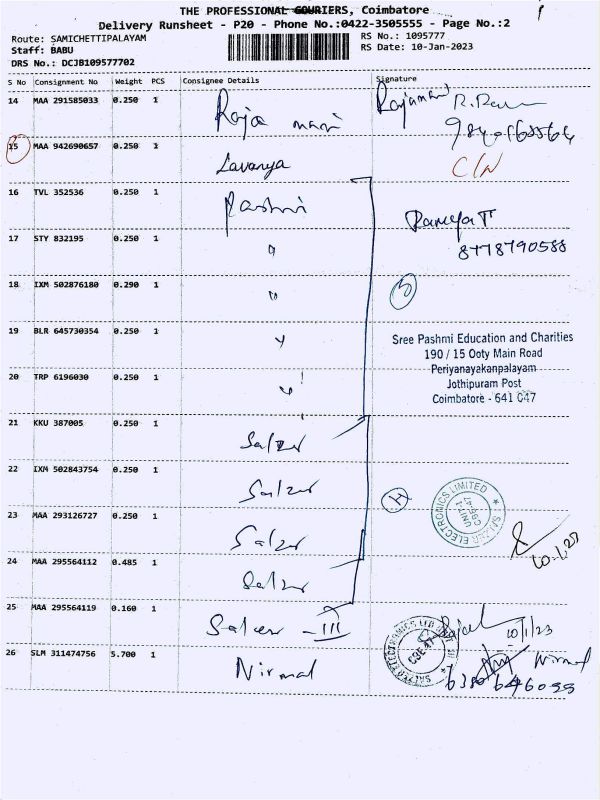 THE PROFESSIONAL COURIERS, Coimbatore
Delivery Runsheet - P20 - Phone No.:0422-3505555 - Page No.:2
Route: SAMICHETTIPALAYAM
RS No.: 1095777
Staff: BABU
RS Date: 10-Jan-2023
DRS No.: DCJB109577702
S No Consignment No Weight PCS Consignee Details Signature
14 MAA 291585033 0.250 1 Raja mani Rajamani
15 MAA 942690657 0.250 1 Lavanya C/N
16 TVL 352536 0.250 1 Rashmi
Ramya T
8778790588
17 STY 832195 0.250 1 "
18 IXM 502876180 0.290 1 " 5
19 BLR 645730354 0.250 1 "
Sree Pashmi Education and Charities
190 / 15 Ooty Main Road
Periyanayakanpalayam
Jothipuram Post
Coimbatore - 641 047
20 TRP 6196030 0.250 1 "
21 KKU 387005 0.250 1 Salzer
22 IXM 502843754 0.250 1 Salzer
SALZER ELECTRONICS LIMITED
UNIT-1
CBE-47
23 MAA 293126727 0.250 1 Salzer
24 MAA 295564112 0.485 1 Salzer
10.1.23
25 MAA 295564119 0.160 1 Salzer - III
10/1/23
26 SLM 311474756 5.700 1 Nirmal Nirmal
6380646055